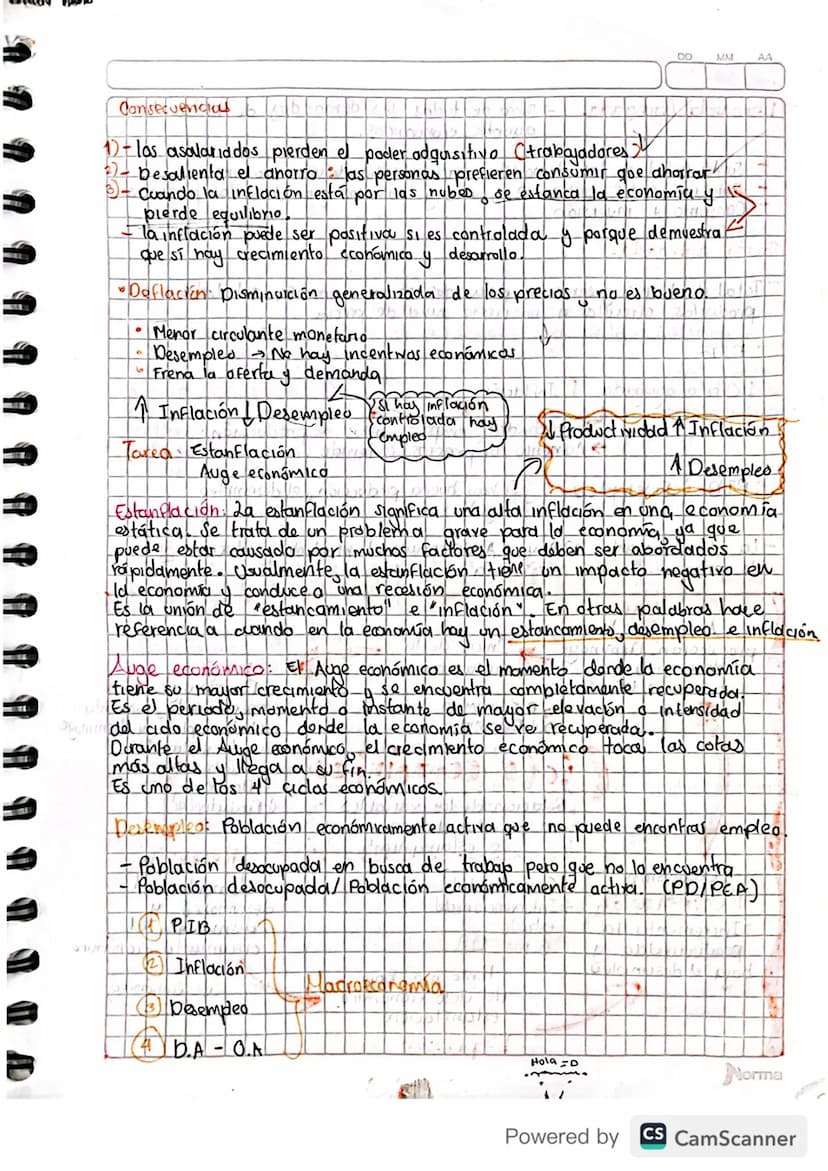 DD MM AA
Consecuencias
1)- los asalariados pierden el poder adquisitivo (trabajadores)
2)- Desalienta el ahorro : las personas prefieren consumir que ahorrar
3)- Cuando la inflación está por las nubes, se estanca la economía y
pierde equilibrio.
- la inflación puede ser positiva si es controlada y porque demuestra
que sí hay crecimiento económico y desarrollo.
• Deflación: Disminuición generalizada de los precios, no es bueno.
• Menor circulante monetario
• Desempleo → No hay incentivos económicos
• Frena la oferta y demanda
↑ Inflación ↓ Desempleo
si hay inflación
controlada hay
empleo
↓ Productividad ↑ Inflación
↑ Desempleo
Tarea: Estanflación
Auge económico
Estanflación: La estanflación significa una alta inflación en una economía
estática. Se trata de un problema grave para la economía, ya que
puede estar causado por muchos factores que deben ser abordados
rápidamente. Usualmente, la estanflación tiene un impacto negativo en
la economía y conduce a una recesión económica.
Es la unión de "estancamiento" e "inflación". En otras palabras hace
referencia a cuando en la economía hay un estancamiento, desempleo e inflación
Auge económico: El Auge económico es el momento donde la economía
tiene su mayor crecimiento y se encuentra completamente recuperada.
Es el periodo, momento o instante de mayor elevación o intensidad
del ciclo económico donde la economía se ve recuperada.
Durante el Auge económico, el crecimiento económico toca las cotas
más altas y llega a su fin.
Es uno de los 4 ciclos económicos.
Desempleo: Población económicamente activa que no puede encontras empleo.
- Población desocupada en busca de trabajo pero que no lo encuentra
- Población desocupada/Población económicamente activa. (PD/PEA)
1 PIB
2 Inflación
3 Desempleo
4 D.A - O.A
Macroeconomía
Hola =D
Norma
Powered by CS CamScanner